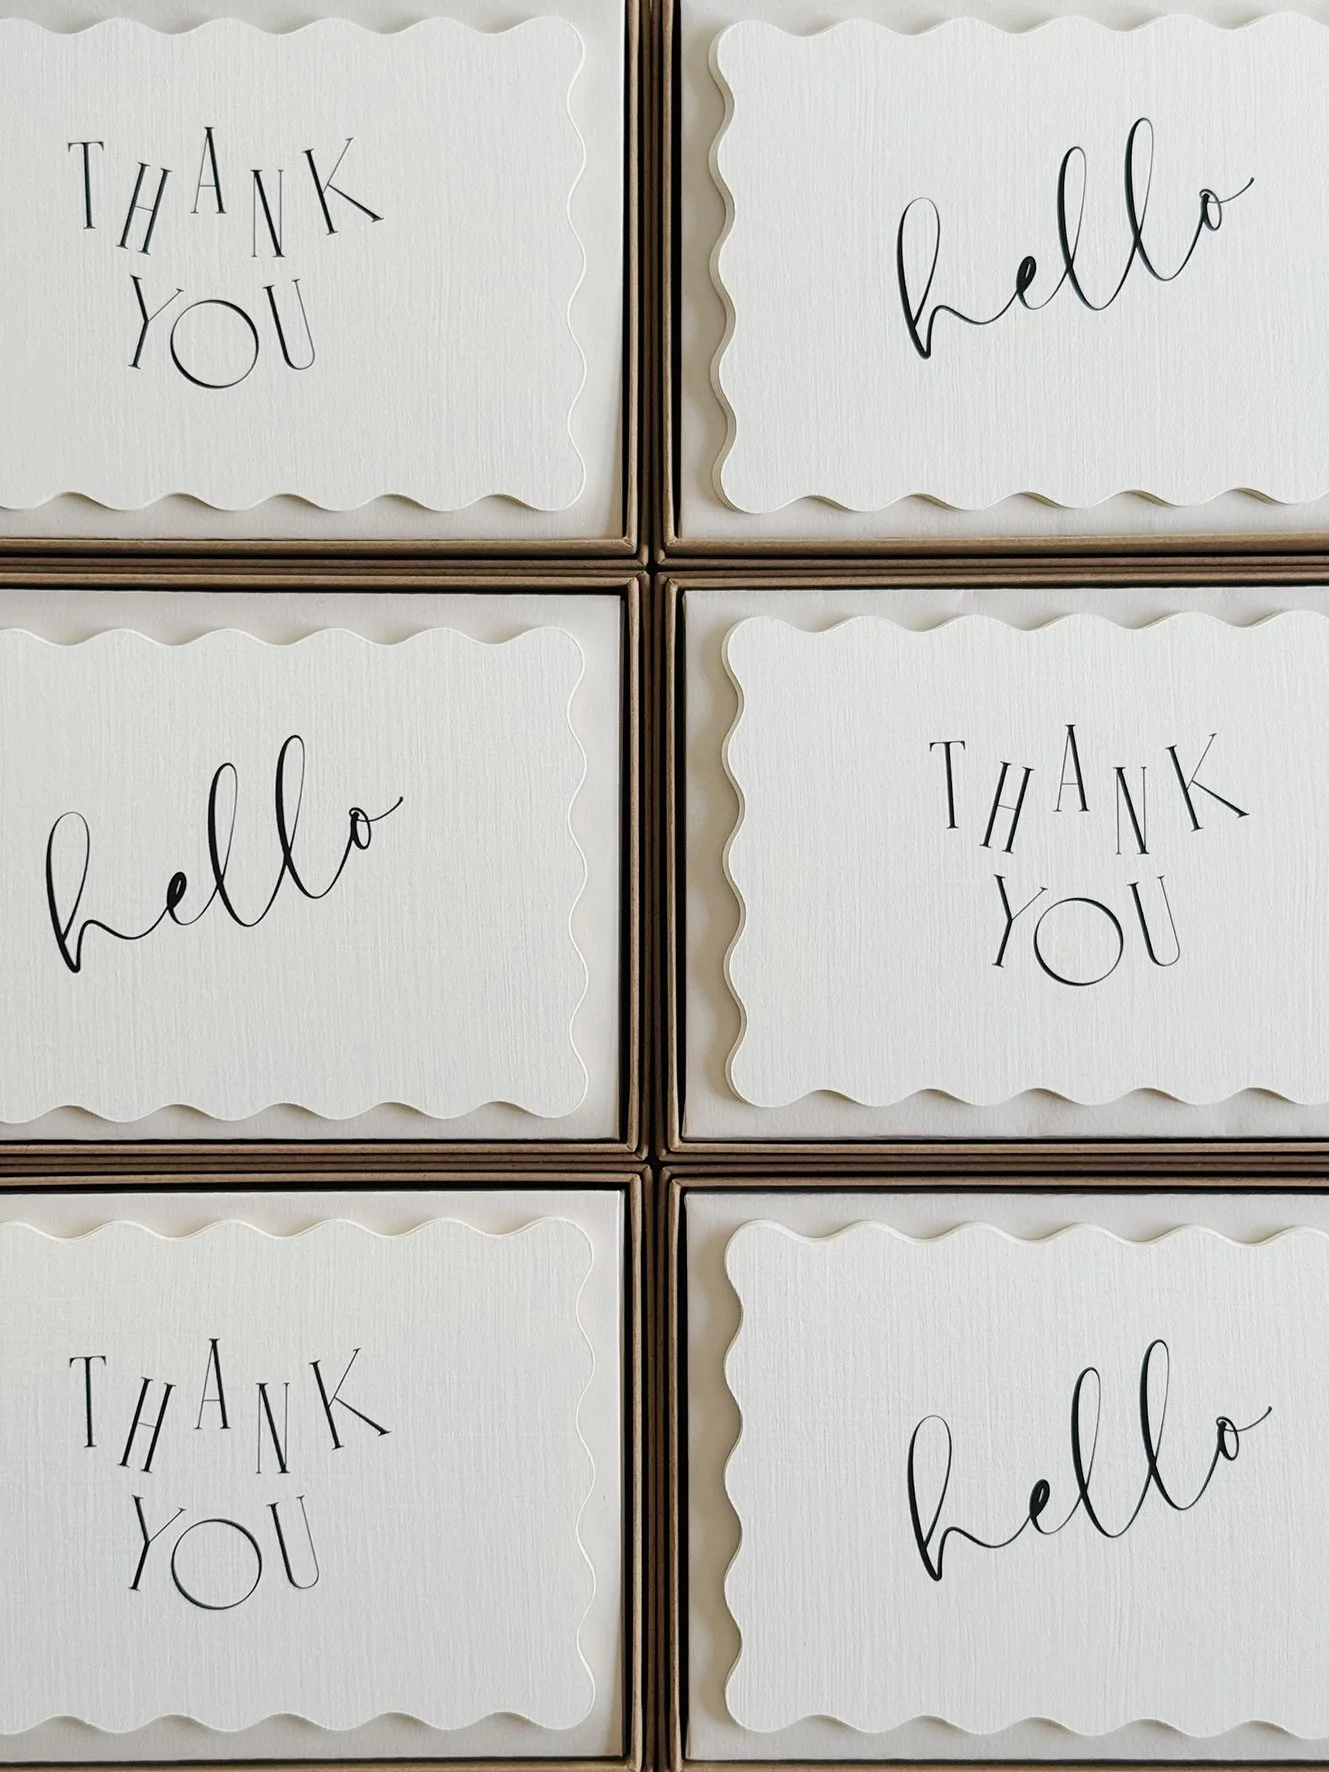 THANK
YOU
hello
hello
THANK
YOU
THANK
YOU
hello